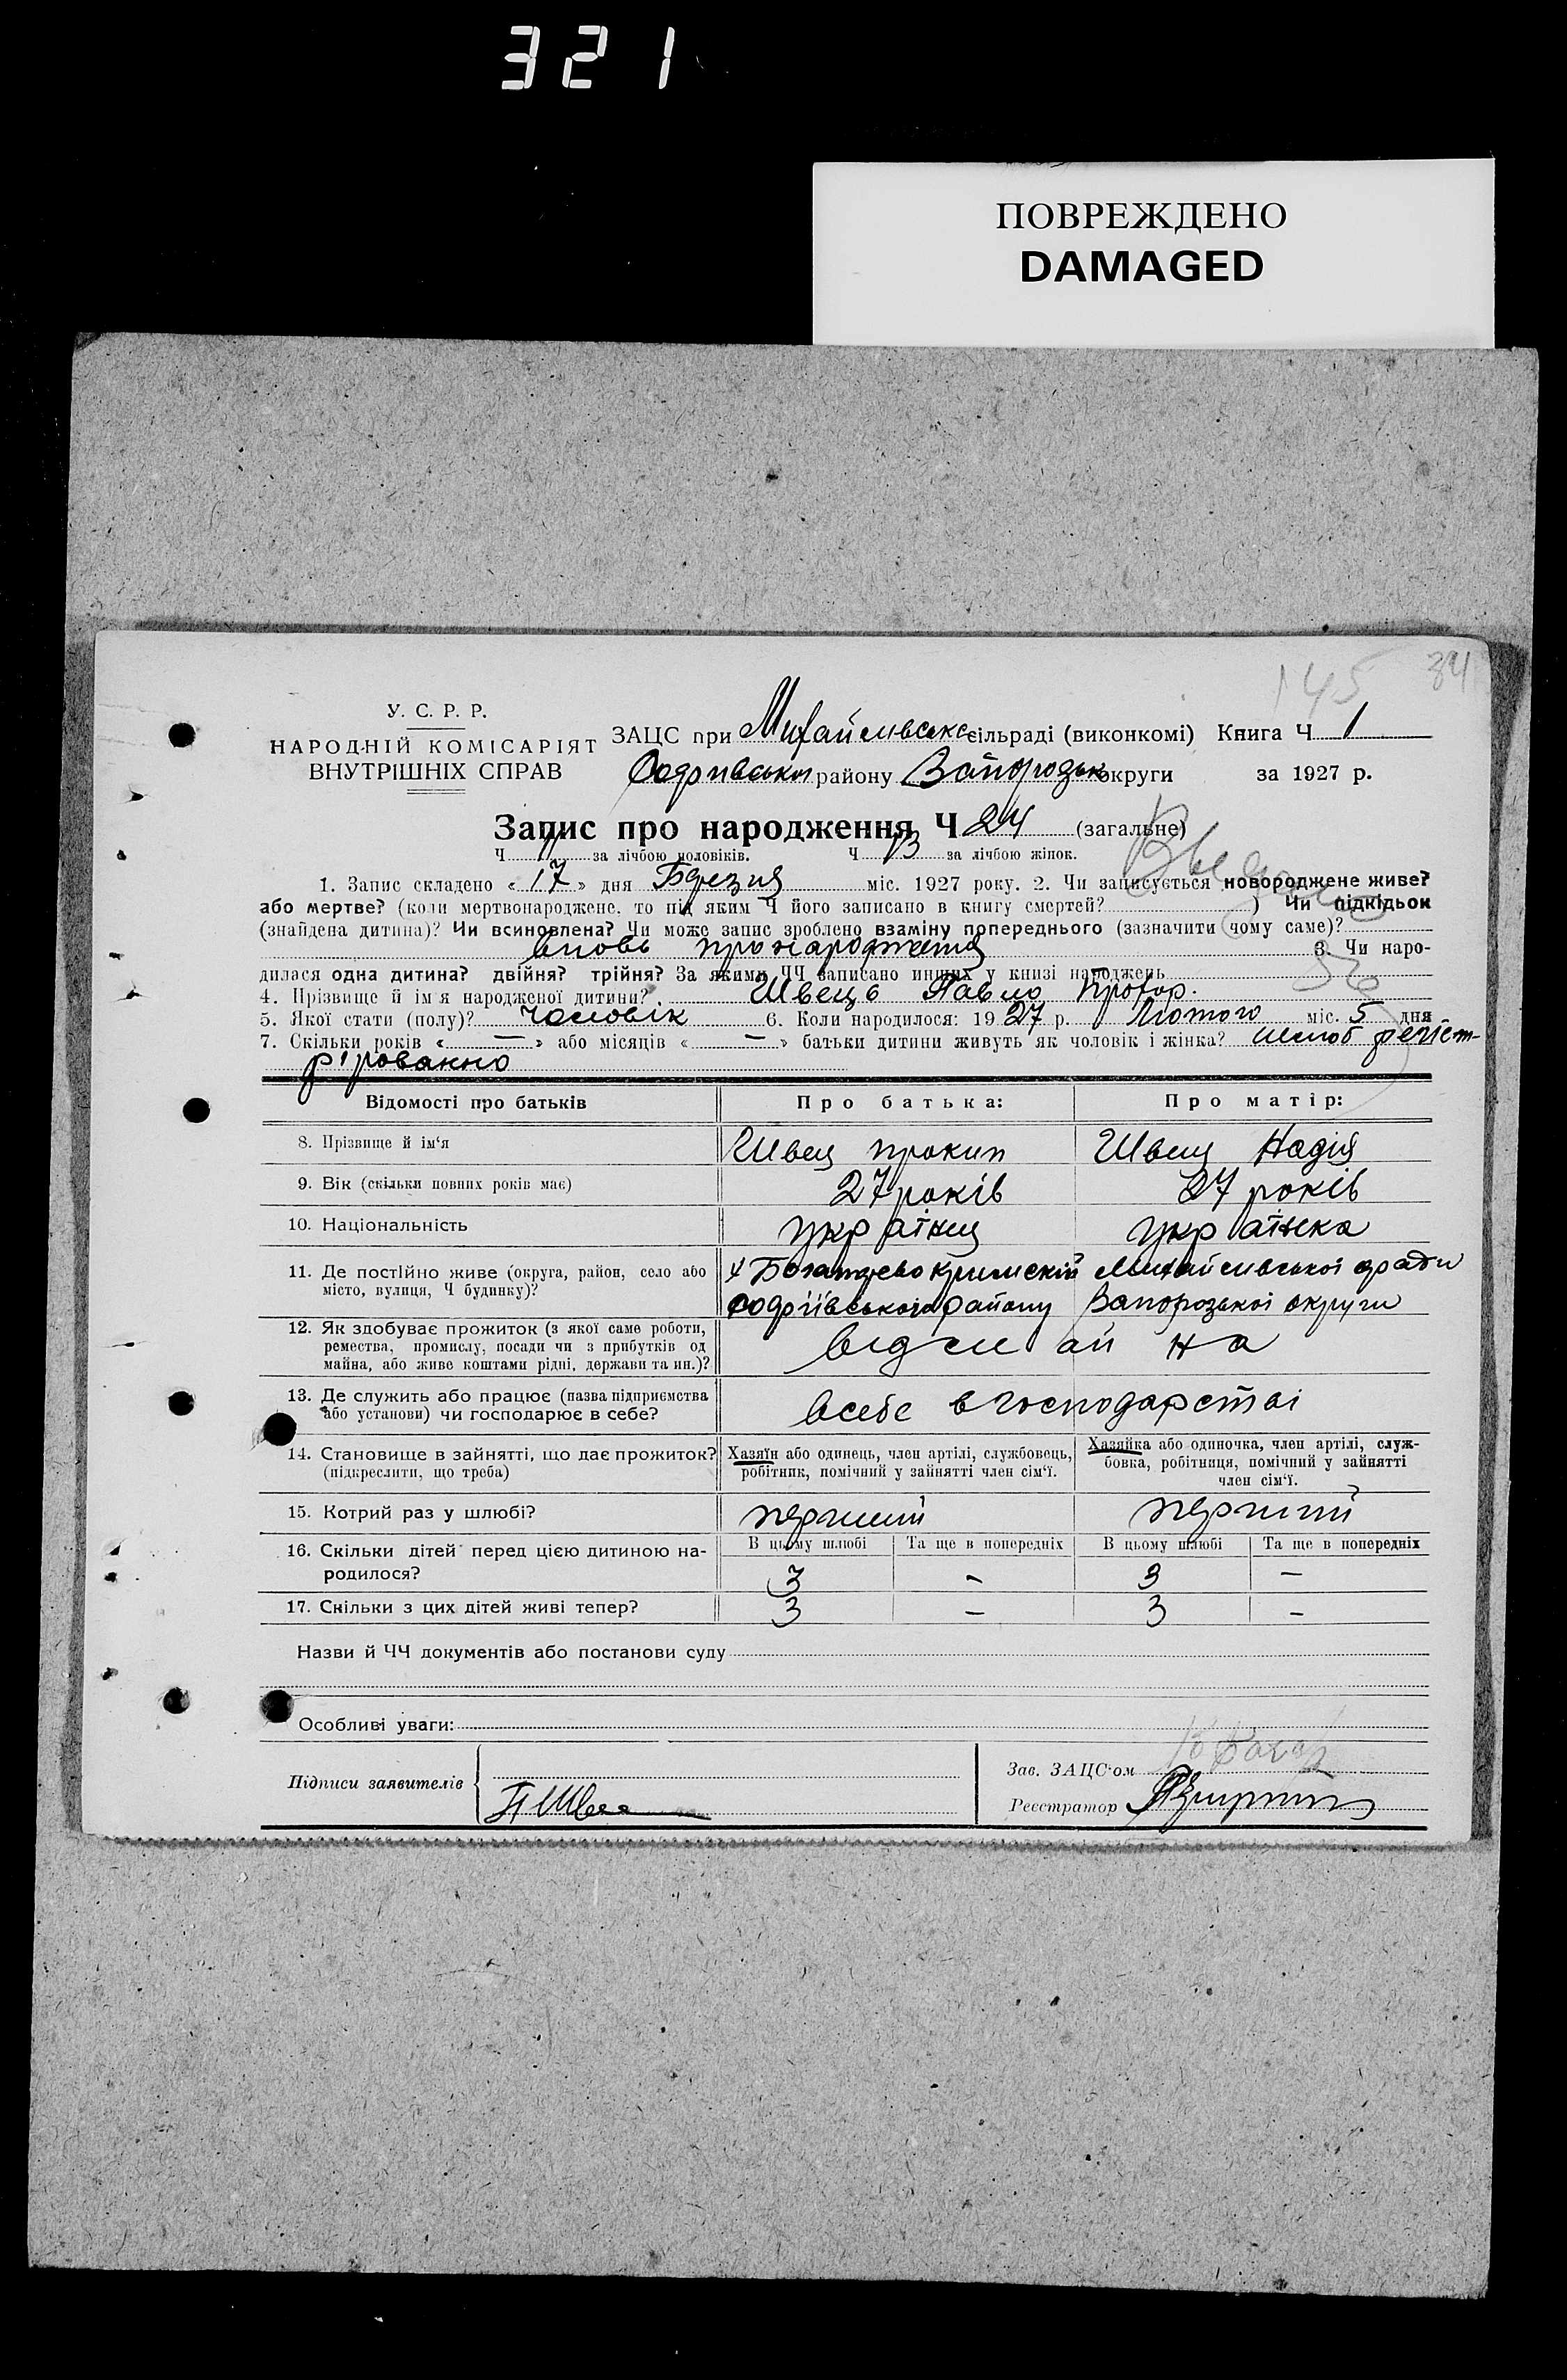 321
ПОВРЕЖДЕНО
DAMAGED
145 34
У. С. Р. Р.
НАРОДНІЙ КОМІСАРІЯТ
ВНУТРІШНІХ СПРАВ
ЗАЦС при Михайлівське сільраді (виконкомі) Книга Ч 1
району Запорозьк округи за 1927 р.
Запис про народження Ч 24 (загальне)
Ч 11 за лічбою чоловіків. Ч 13 за лічбою жінок.
1. Запис складено « 17 » дня Березня міс. 1927 року. 2. Чи записується новороджене живе?
або мертве? (коли мертвонароджене, то під яким Ч його записано в книгу смертей? ) Чи підкідьок
(знайдена дитина)? Чи всиновлена? Чи може запис зроблено взаміну попереднього (зазначити чому саме)?
вновь про народження 3. Чи наро-
дилася одна дитина? двійня? трійня? За якими ЧЧ записано инших у книзі народжень
4. Прізвище й ім'я народженої дитини? Швець Павло
5. Якої стати (полу)? Чоловік 6. Коли народилося: 1927 р. Лютого міс. 5 дня
7. Скільки років « — » або місяців « — » батьки дитини живуть як чоловік і жінка? шлюб регіст-
рірованно
Відомості про батьків Про батька: Про матір:
8. Прізвище й ім'я Швец прокип Швец Надія
9. Вік (скільки повних років має) 27 років 27 років
10. Національність українец українка
11. Де постійно живе (округа, район, село або Михайлівської ради
місто, вулиця, Ч будинку)? району Запорозької округи
12. Як здобуває прожиток (з якої саме роботи,
ремества, промислу, посади чи з прибутків од
майна, або живе коштами рідні, держави та ин.)?
13. Де служить або працює (назва підприємства всебе в господарстві
або установи) чи господарює в себе?
14. Становище в зайнятті, що дає прожиток? Хазяїн або одинець, член артілі, службовець, Хазяйка або одиночка, член артілі, служ-
(підкреслити, що треба) робітник, помічний у зайнятті член сім'ї. бовка, робітниця, помічний у зайнятті
член сім'ї.
15. Котрий раз у шлюбі? перший перший
16. Скільки дітей перед цією дитиною на- В цьому шлюбі Та ще в попередніх В цьому шлюбі Та ще в попередніх
родилося? 3 - 3 —
17. Скільки з цих дітей живі тепер? 3 — 3 —
Назви й ЧЧ документів або постанови суду
Особливі уваги:
Підписи заявителів
П Швец
Зав. ЗАЦС'ом
Реєстратор